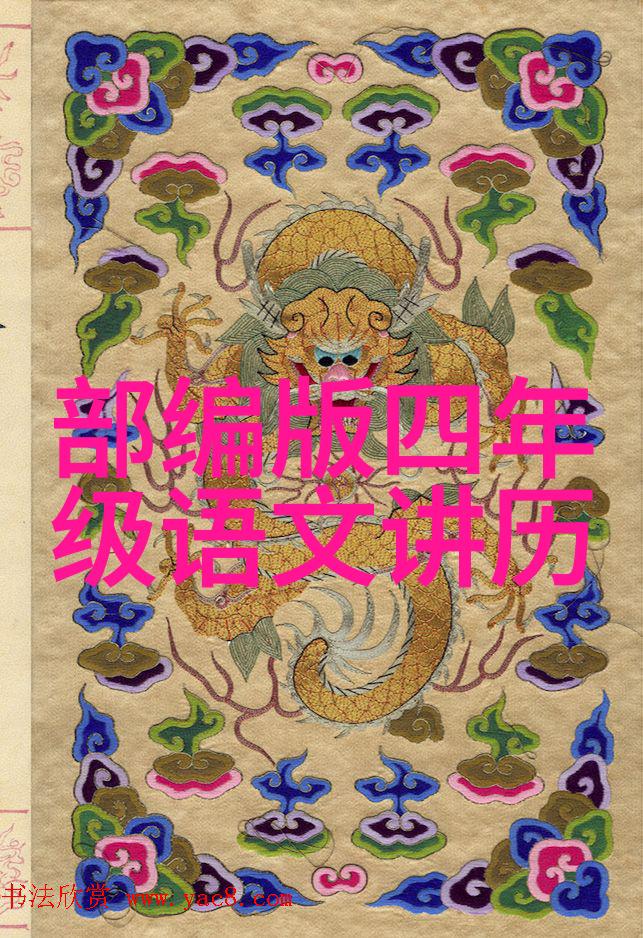 部编版四年
级语文讲历
书法欣赏 www.yac8.com